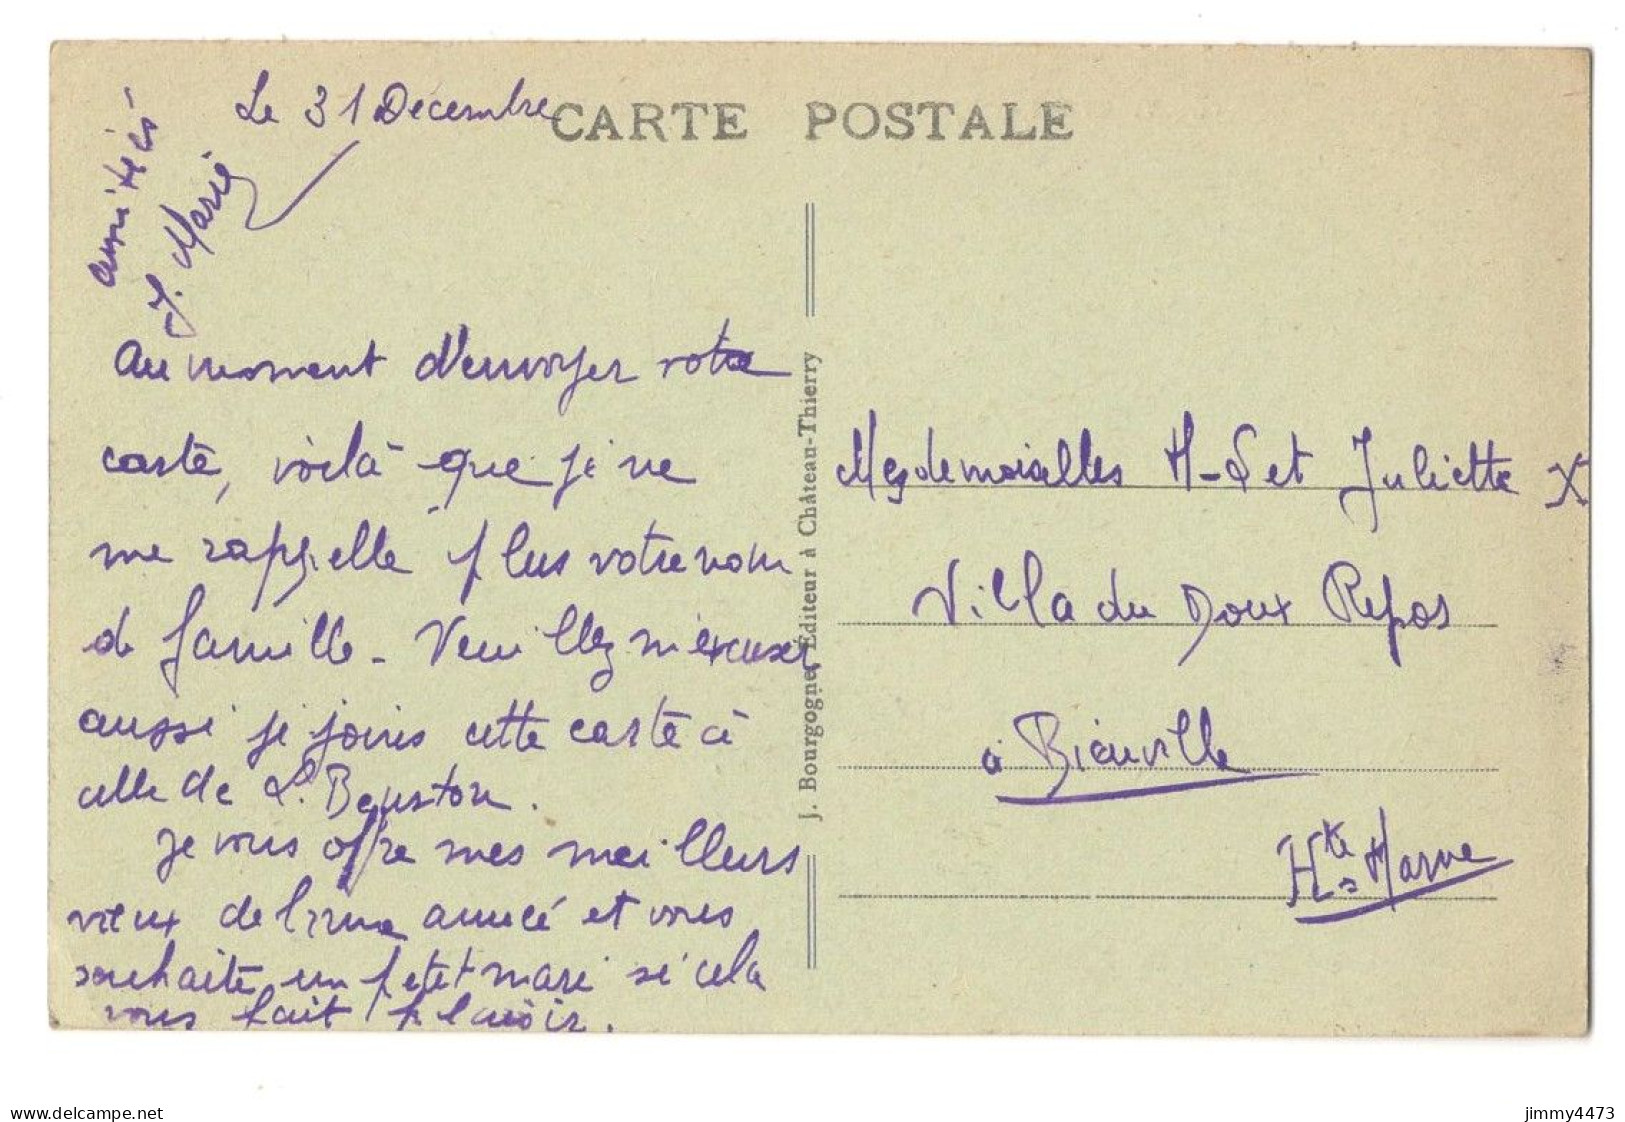 Le 31 Décembre
CARTE POSTALE
amitiés
J. Marie
Au moment d'envoyer votre
carte, voilà que je ne
me rappelle plus votre nom
de famille - Veuillez m'excuser
aussi je joins cette carte à
celle de
je vous offre mes meilleurs
vœux de bonne année et vous
souhaite un petit mari si cela
vous fait plaisir.
J. Bourgogne, Éditeur à Château-Thierry
Mesdemoiselles M-L et Juliette X
Villa du Doux Repos
à Bienville
Hte Marne
www.delcampe.net
jimmy4473